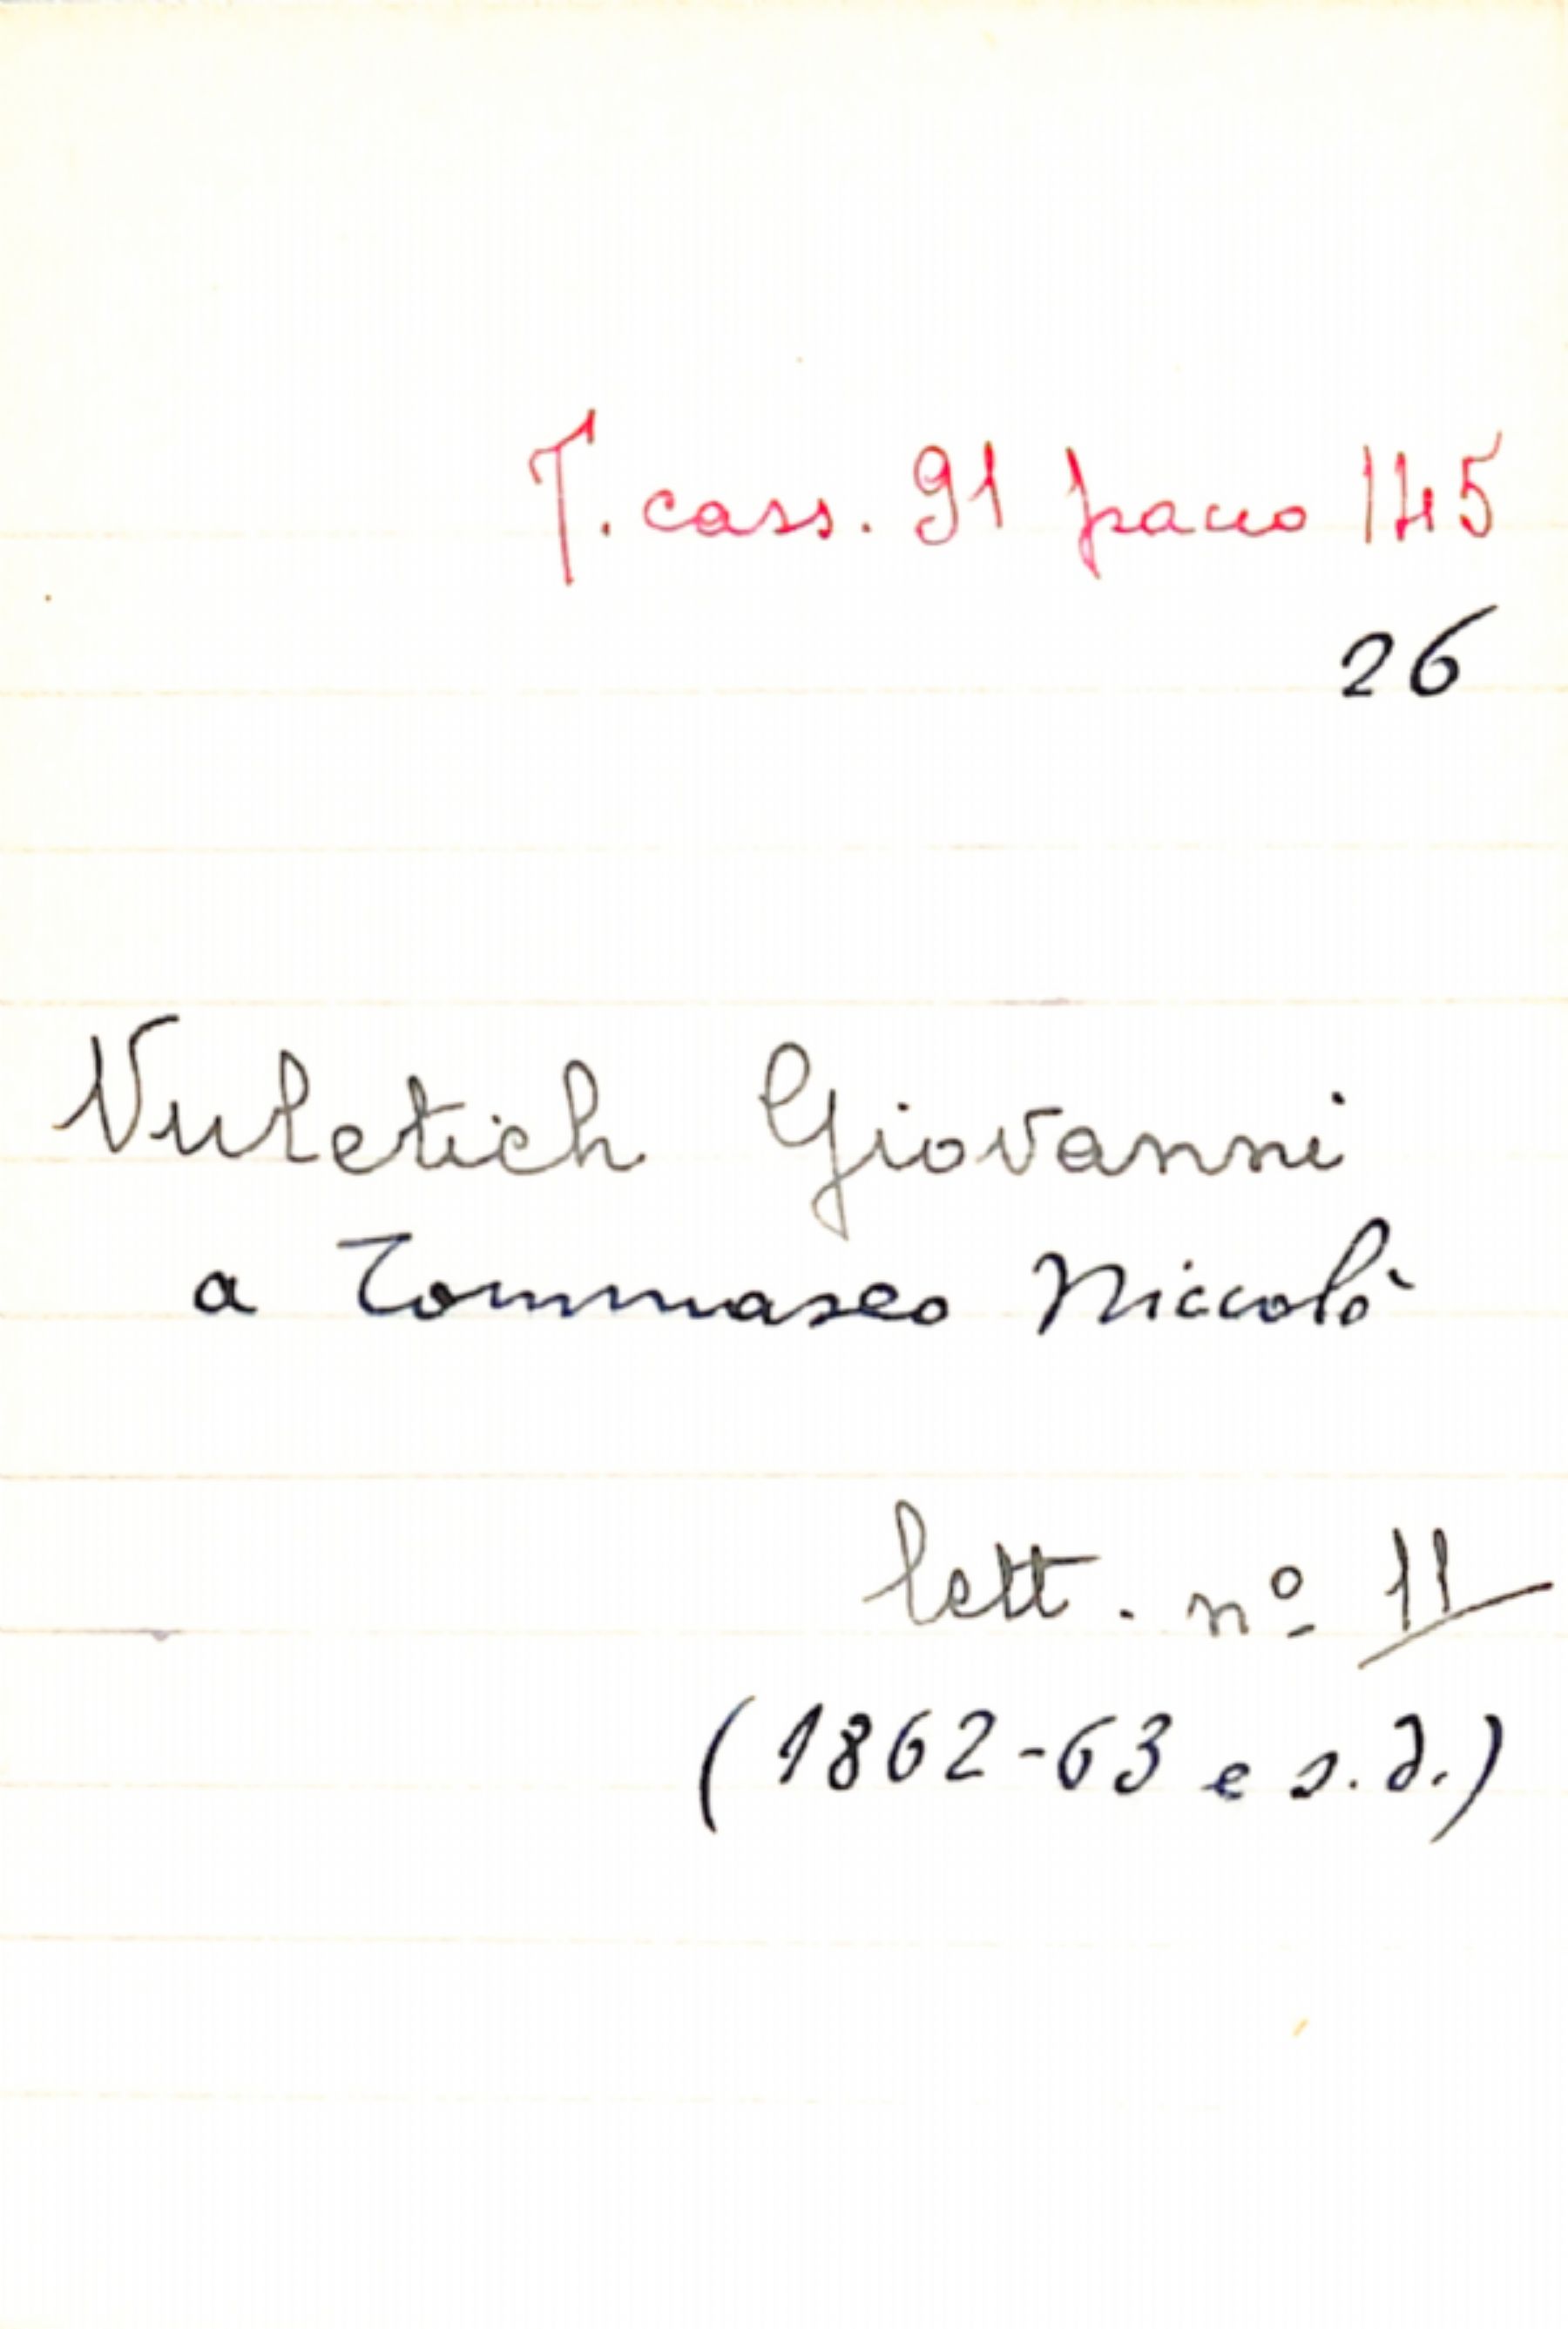 T. cass. 91 pacco 145
26
Vuletich Giovanni
a Tommaseo Niccolò
lett. nº 11
(1862-63 e s.d.)